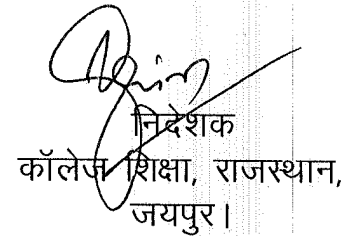 निदेशक
कॉलेज शिक्षा, राजस्थान,
जयपुर।